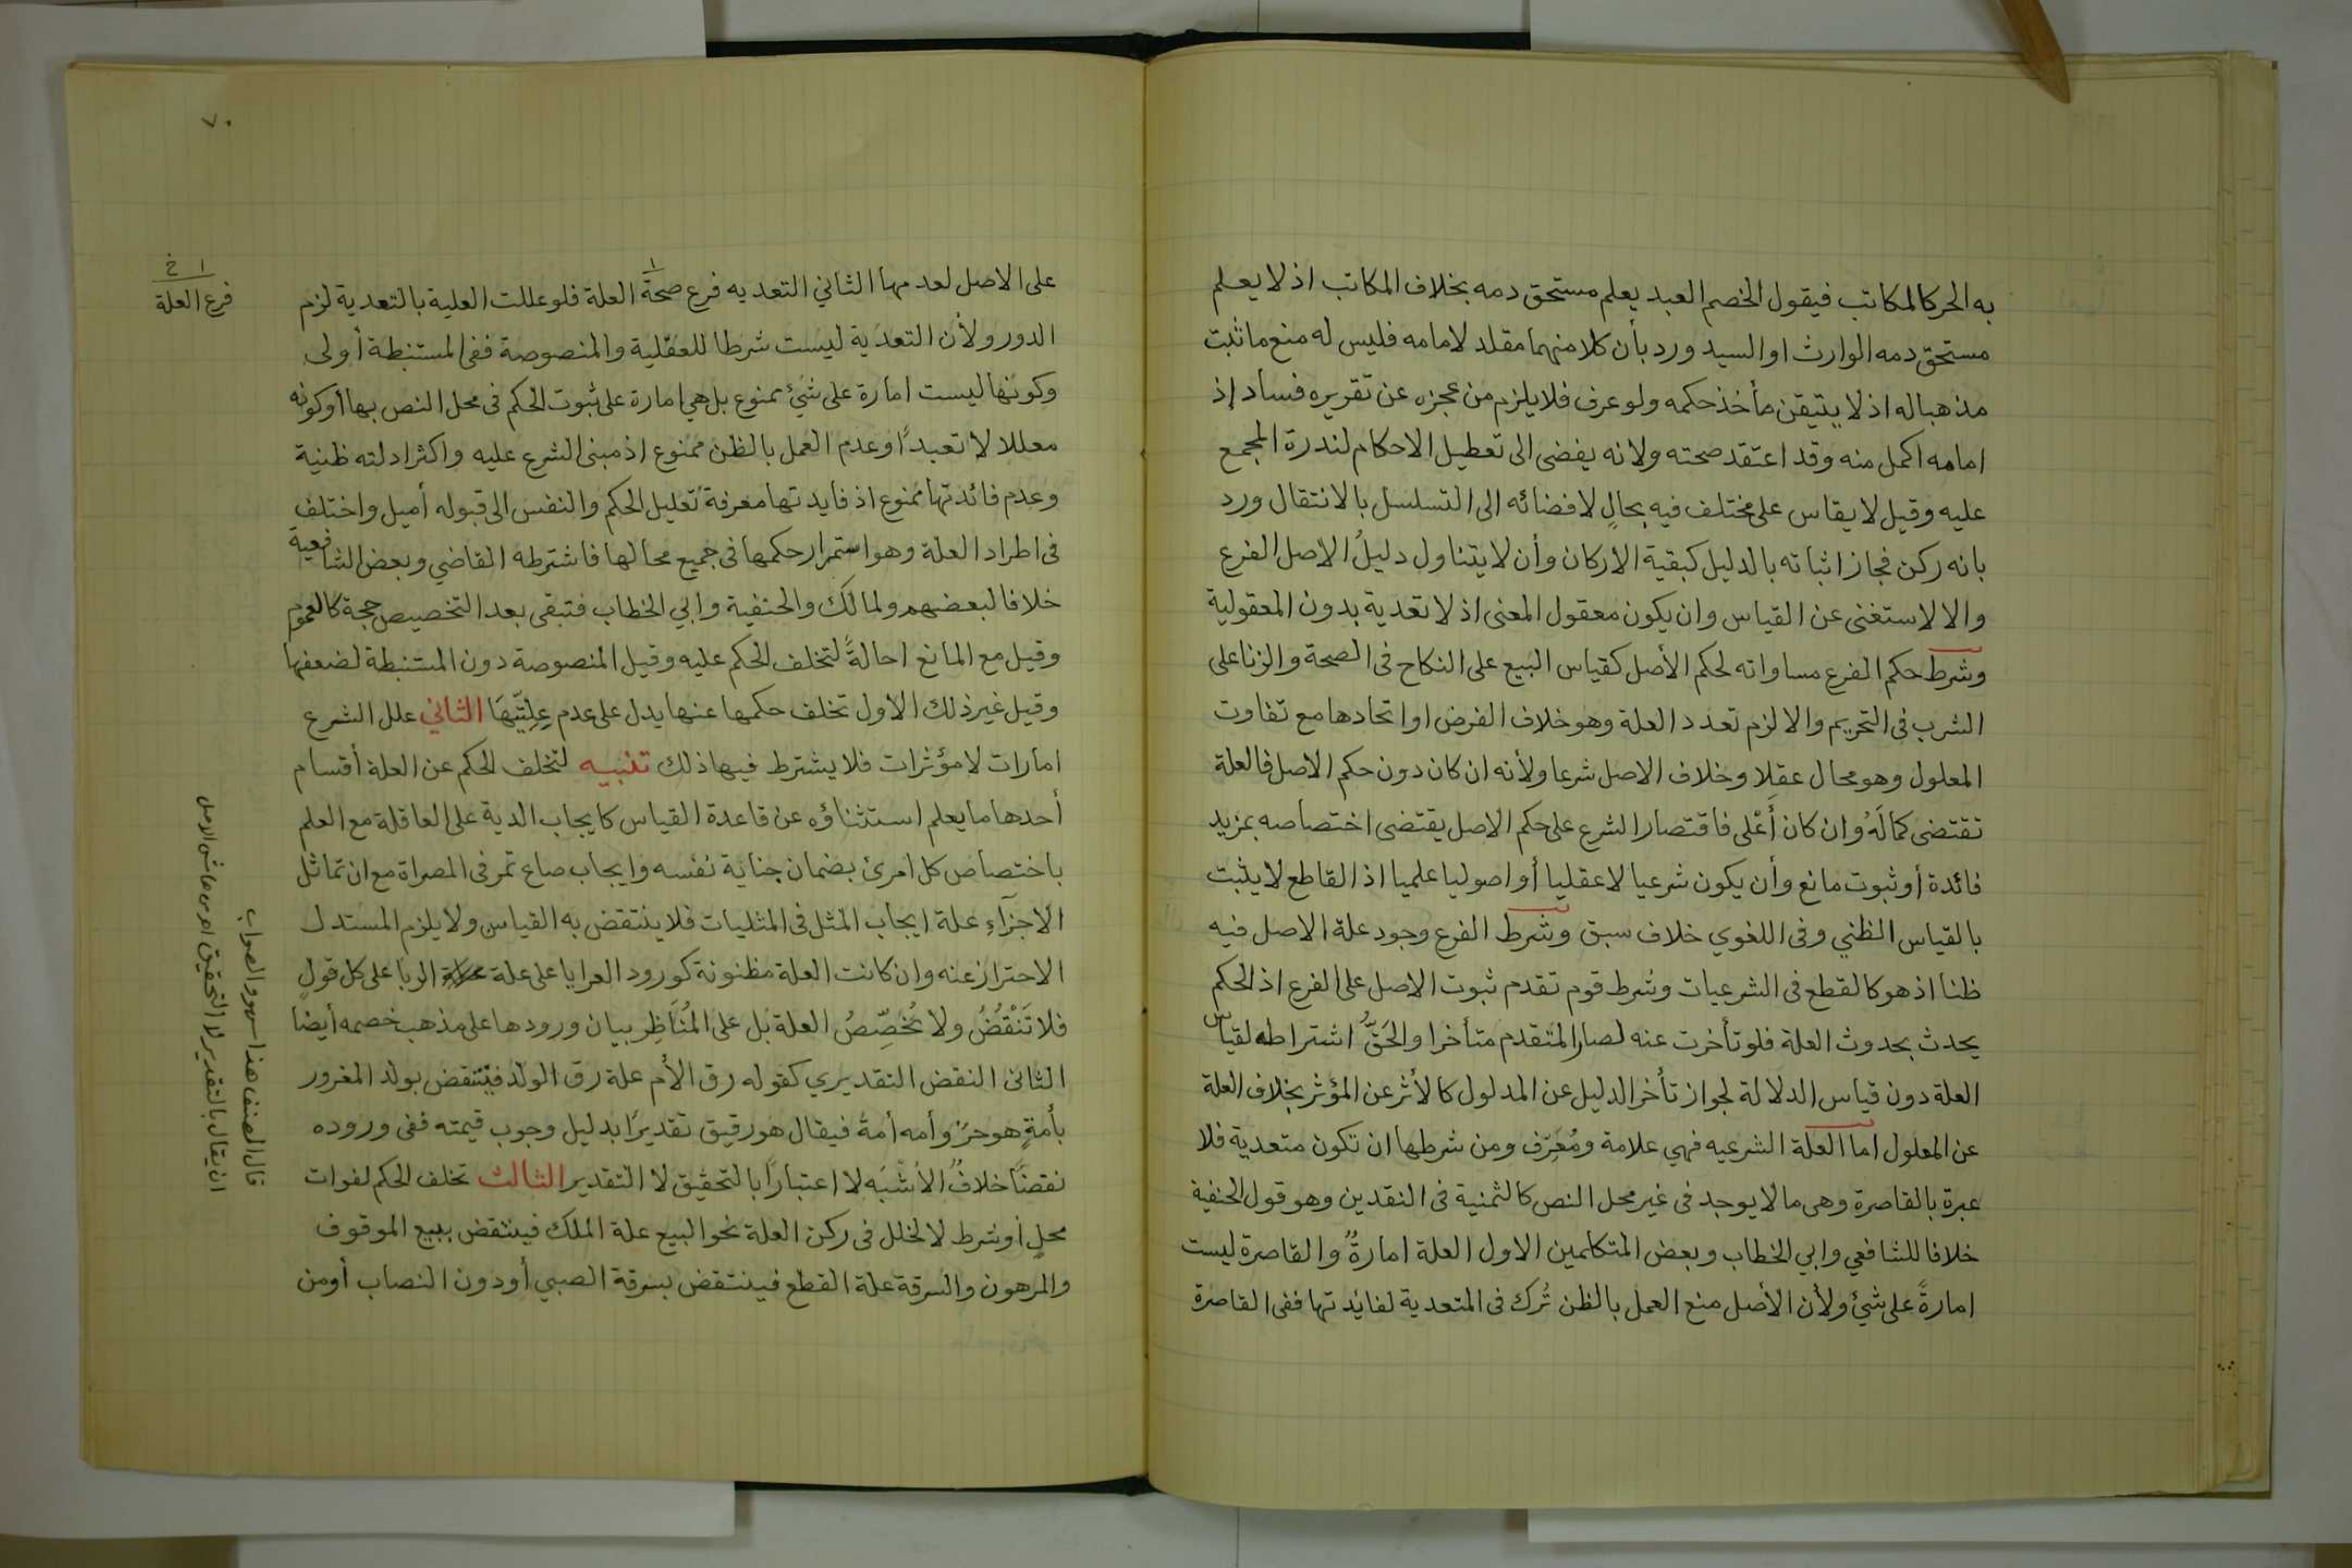 به الحر كالمكاتب فيقول الخصم العبد يعلم مستحق دمه بخلاف المكاتب اذ لا يعلم
مستحق دمه الوارث او السيد ورد بأن كلا منهما مقلد لامامه فليس له منع ما ثبت
مذهبا له اذ لا يتيقن مأخذ حكمه ولو عرف فلا يلزم من عجزه عن تقريره فساده إذ
امامه اكمل منه وقد اعتقد صحته ولانه يفضى الى تعطيل الاحكام لندرة المجمع
عليه وقيل لا يقاس على مختلف فيه بحالٍ لافضائه الى التسلسل بالانتقال ورد
بانه ركن فجاز اثباته بالدليل كبقية الاركان وأن لا يتناول دليلُ الاصل الفرع
والا لاستغنى عن القياس وان يكون معقول المعنى اذ لا تعدية بدون المعقولية
وشرط حكم الفرع مساواته لحكم الأصل كقياس البيع على النكاح فى الصحة والزنا على
الشرب فى التحريم والا لزم تعدد العلة وهو خلاف الفرض او اتحادها مع تفاوت
المعلول وهو محال عقلا وخلاف الاصل شرعا ولأنه ان كان دون حكم الاصل فالعلة
تقتضى كمالَهُ وان كان أَعْلى فاقتصار الشرع على حكم الاصل يقتضى اختصاصه بمزيد
فائدة أو ثبوت مانع وأن يكون شرعيا لا عقليا أو اصوليا علميا اذ القاطع لا يثبت
بالقياس الظني وفى اللغوي خلاف سبق وشرط الفرع وجود علة الاصل فيه
ظنا اذ هو كالقطع فى الشرعيات وشرط قوم تقدم ثبوت الاصل على الفرع اذ الحكم
يحدث بحدوث العلة فلو تأخرت عنه لصار المتقدم متأخرا والحَقُّ اشتراطه لقياس
العلة دون قياس الدلالة لجواز تأخر الدليل عن المدلول كالأثر عن المؤثر بخلاف العلة
عن المعلول اما العلة الشرعيه فهي علامة ومُعَرِّف ومن شرطها ان تكون متعدية فلا
عبرة بالقاصرة وهى ما لا يوجد فى غير محل النص كالثمنية فى النقدين وهو قول الحنفية
خلافا للشافعي وابي الخطاب وبعض المتكلمين الاول العلة امارةٌ والقاصرة ليست
امارةً على شئ ولأن الأصل منع العمل بالظن تُرك فى المتعدية لفائدتها ففى القاصرة
٧٠
على الاصل لعدمها الثاني التعديه فرع صحة العلة فلو عللت العلية بالتعدية لزم
١ خ
فرع العلة
الدور ولأن التعدَية ليست شرطا للعقلية والمنصوصة ففى المستنبطة أولى
وكونها ليست امارة على شئ ممنوع بل هي امارة على ثبوت الحكم فى محل النص بها أو كونه
معللا لا تعبداً وعدم العمل بالظن ممنوع اذ مبنى الشرع عليه واكثر ادلته ظنية
وعدم فائدتها ممنوع اذ فايدتها معرفة تعليل الحكم والنفس الى قبوله أميل واختلف
فى اطراد العلة وهو استمرار حكمها فى جميع محالها فاشترطه القاضي وبعض الشافعية
خلافا لبعضهم ولمالك والحنفية وابي الخطاب فتبقى بعد التخصيص حجة كالعموم
وقيل مع المانع احالةً لتخلف الحكم عليه وقيل المنصوصة دون المستنبطة لضعفها
وقيل غير ذلك الاول تخلف حكمها عنها يدل على عدم عِلِيّتِهَا الثاني علل الشرع
امارات لا مؤثرات فلا يشترط فيها ذلك تنبيه لتخلف الحكم عن العلة أقسام
أحدها ما يعلم استثناؤه عن قاعدة القياس كايجاب الدية على العاقلة مع العلم
باختصاص كل امرئ بضمان جناية نفسه وايجاب صاع تمر فى المصراة مع ان تماثل
الاجزآءِ علة ايجاب المثل فى المثليات فلا ينتقض به القياس ولا يلزم المستدل
الاحتراز عنه وان كانت العلة مظنونة كورود العرايا على علة الربا على كل قولٍ
فلا تَنْقُضُ ولا تُخَصِّصُ العلة بل على المُنَاظِر بيان ورودها على مذهب خصمه أيضا
الثانى النقض التقديري كقوله رق الأم علة رق الولد فيَنتقض بولد المغرور
بأمةٍ هو حرٌ وأمه أمة فيقال هو رقيق تقديرًا بدليل وجوب قيمته ففى وروده
نقضًا خلافٌ الأشبَه لا اعتبارًا بالتحقيق لا التقدير الثالث تخلف الحكم لفوات
محلٍ أو شرط لا لخلل فى ركن العلة نحو البيع علة الملك فينتقض ببيع الموقوف
والمرهون والسرقة علة القطع فينتقض بسرقة الصبي أو دون النصاب أو من
قال المصنف هذا سهو والصواب
ان يقال بالتقدير لا التحقيق اهـ من هامش الاصل